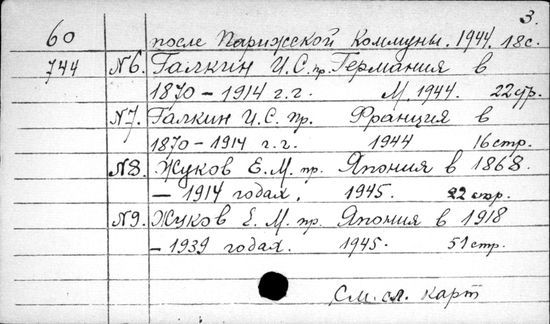 3.
60 после Парижской Коммуны. 1944. 18с.
744 №6. Галкин И.С. пр. Германия в
1870 – 1914 г.г. М. 1944. 22стр.
№7. Галкин И.С. пр. Франция в
1870 – 1914 г.г. 1944 16стр.
№8. Жуков Е.М. пр. Япония в 1868
– 1914 годах. 1945. 22 стр.
№9. Жуков Е.М. пр. Япония в 1918
– 1939 годах. 1945. 51стр.
См. сл. карт